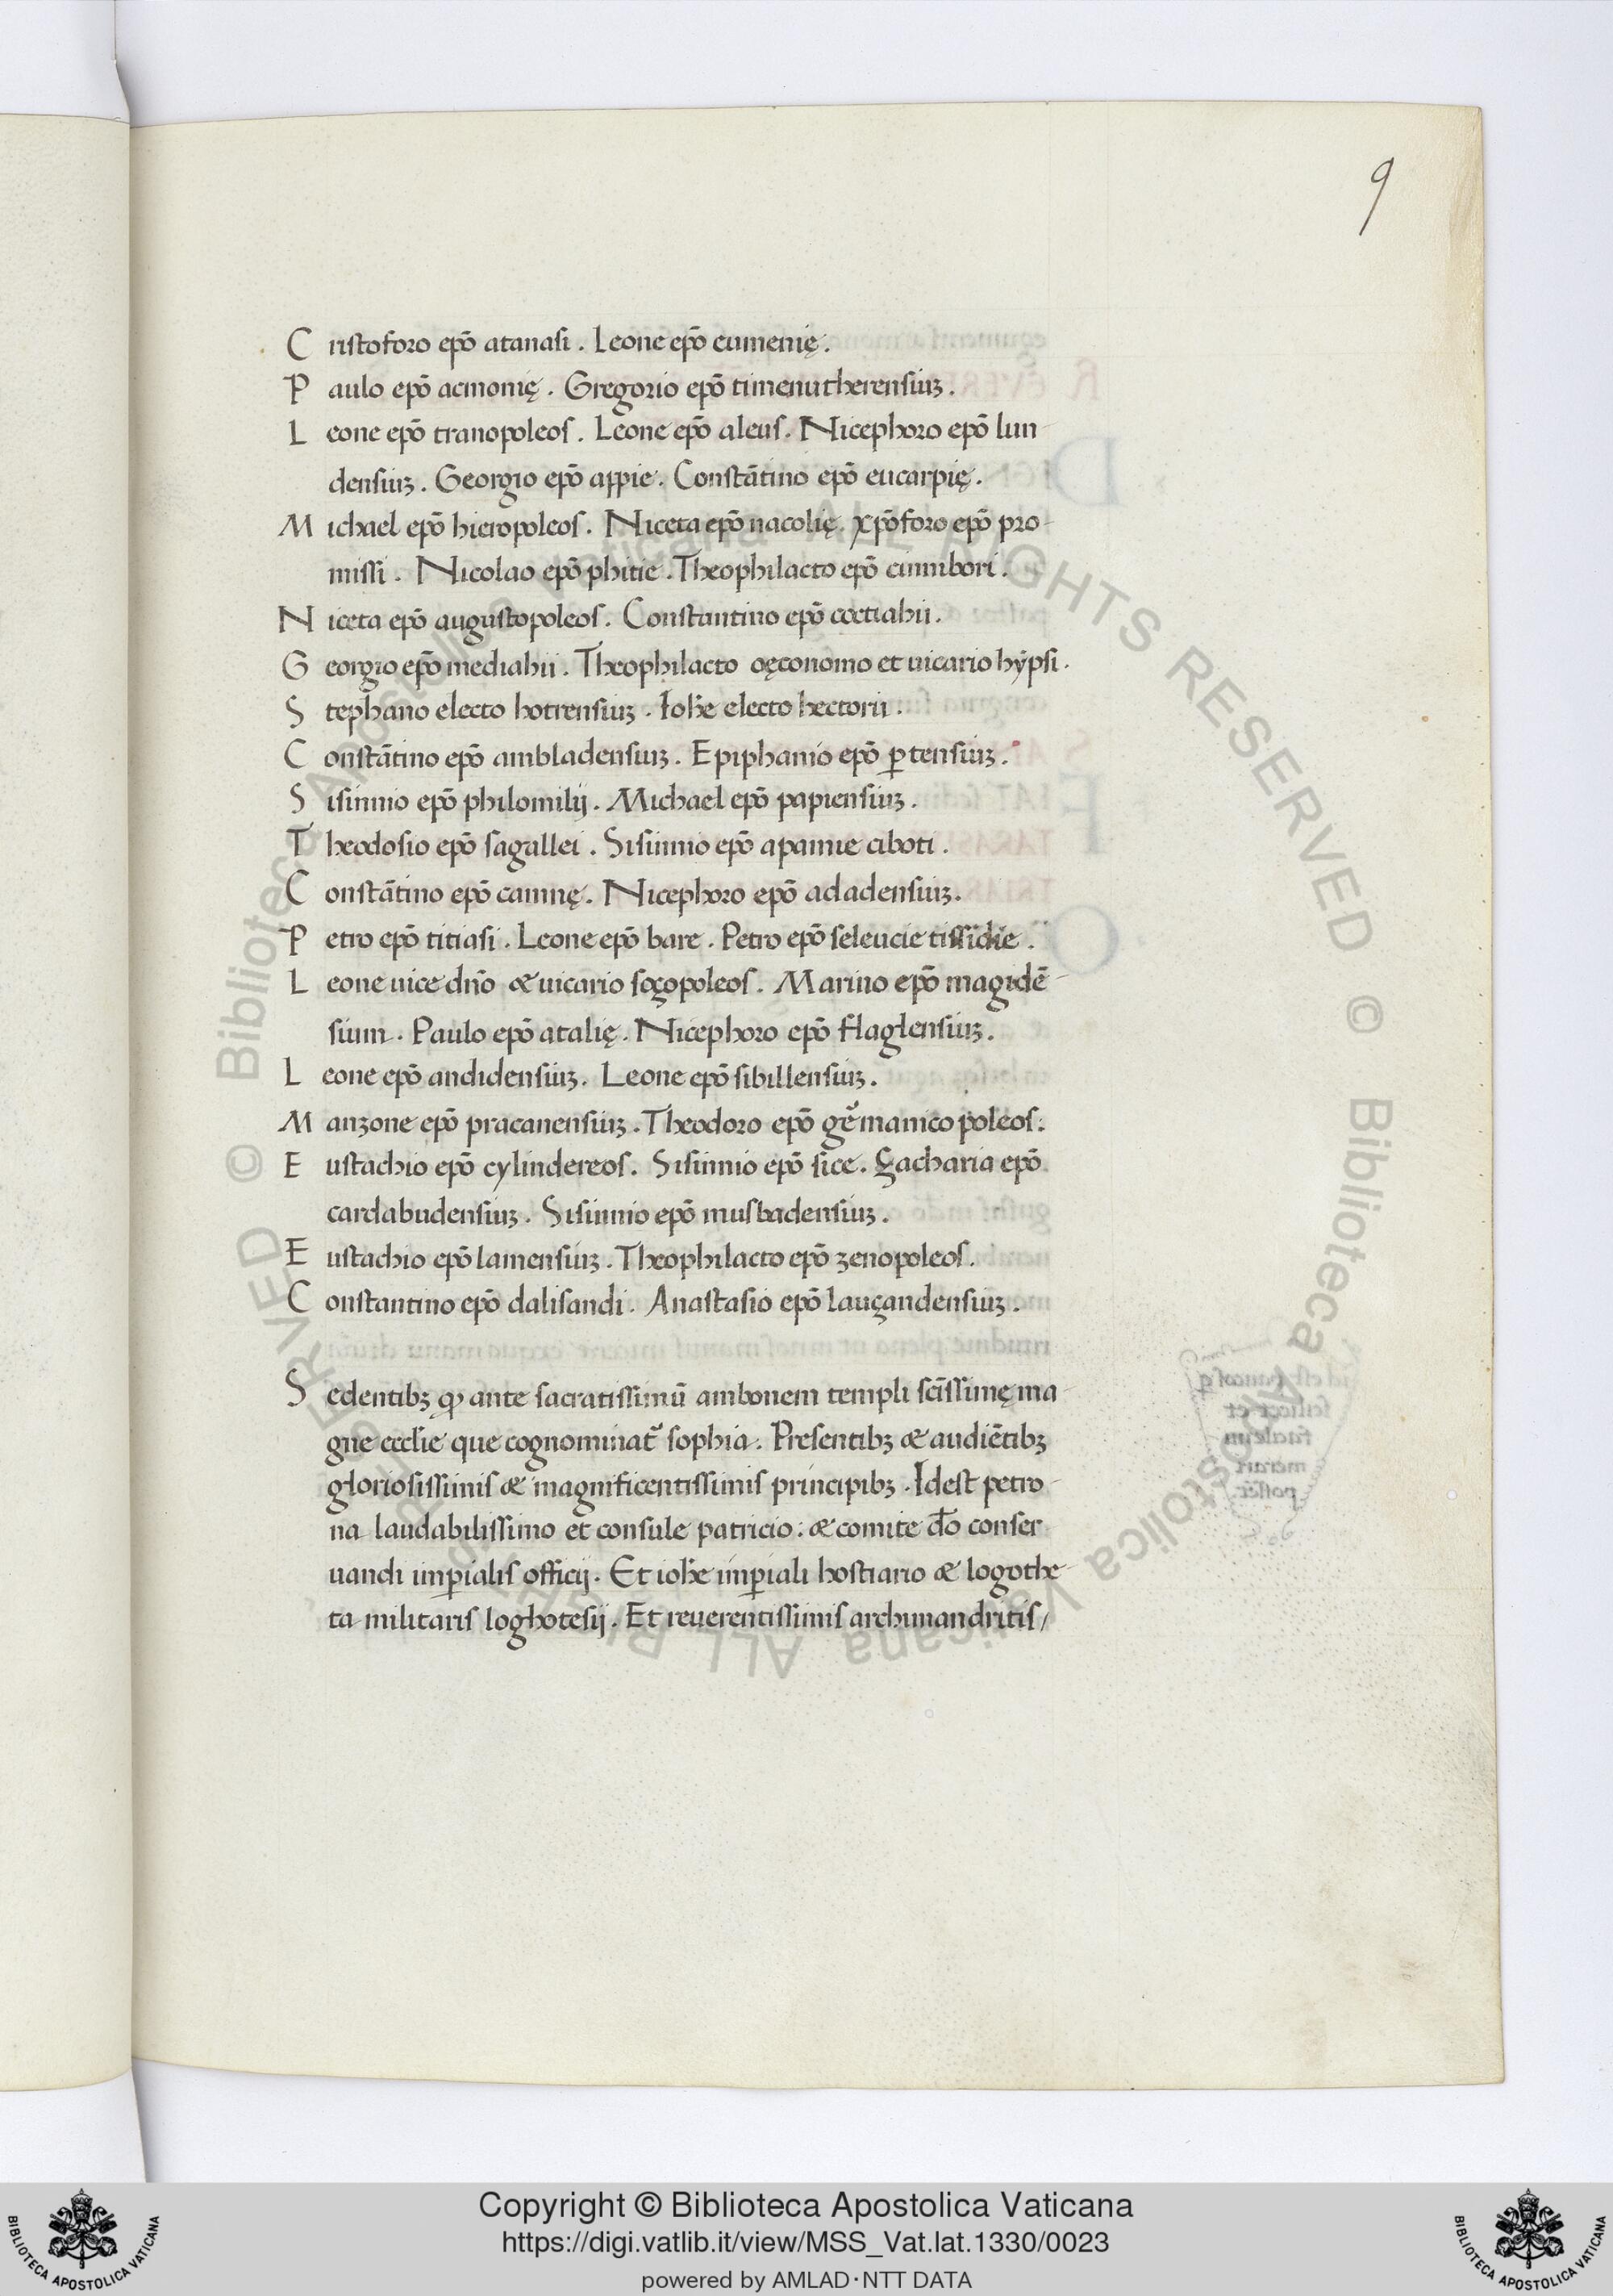 9
Cristoforo ep̄o atanasi. Leone ep̄o eumenię.
Paulo ep̄o acmonię. Gregorio ep̄o timenutherensiuꝫ.
Leone ep̄o tranopoleos. Leone ep̄o aleus. Nicephoro ep̄o lun
densiuꝫ. Georgio ep̄o appie. Constātino ep̄o eucarpię.
Michael ep̄o hieropoleos. Niceta ep̄o nacolię. xp̄oforo ep̄o pro-
missi. Nicolao ep̄o phitie. Theophilacto ep̄o cinnibori.
Niceta ep̄o augustopoleos. Constantino ep̄o coctiahii.
Georgio ep̄o mediahii. Theophilacto oęconomo et uicario hẏpsi.
Stephano electo hotrensiuꝫ. Ioh̄e electo hectorii.
Constātino ep̄o ambladensiuꝫ. Epiphanio ep̄o ꝑtensiuꝫ.
Sisinnio ep̄o philomilij. Michael ep̄o papiensiuꝫ.
Theodosio ep̄o sagallei. Sisinnio ep̄o apamie ciboti.
Constātino ep̄o camnę. Nicephoro ep̄o adadensiuꝫ.
Petro ep̄o titiasi. Leone ep̄o bare. Petro ep̄o seleucie tissidie.
Leone uice dn̄o & uicario soçopoleos. Marino ep̄o magidē-
sium. Paulo ep̄o atalię. Nicephoro ep̄o flaglensiuꝫ.
Leone ep̄o andidensiuꝫ. Leone ep̄o sibillensiuꝫ.
Manzone ep̄o pracanensiuꝫ. Theodoro ep̄o gẽmanico poleos.
Eustachio ep̄o cylindereos. Sisinnio ep̄o sice. Çacharia ep̄o
cardabudensiuꝫ. Sisinnio ep̄o musbadensiuꝫ.
Eustachio ep̄o lamensiuꝫ. Theophilacto ep̄o zenopoleos.
Constantino ep̄o dalisandi. Anastasio ep̄o lauçandensiuꝫ.
Sedentibꝫ ꝙ ante sacratissimū ambonem templi sc̄issimę ma-
gne eccl̄ie que cognominat᷑ sophia. Presentibꝫ & audiētibꝫ
gloriosissimis & magnificentissimis principibꝫ. Idest petro-
na laudabilissimo et consule patricio: & comite d̄o conser
uandi imꝑialis officij. Et ioh̄e imꝑiali hostiario & logothe-
ta militaris loghotesij. Et reuerentissimis archimandritis/
© Biblioteca Apostolica Vaticana ALL RIGHTS RESERVED © Biblioteca Apostolica Vaticana ALL RIGHTS RESERVED
BIBLIOTECA APOSTOLICA VATICANA
Copyright © Biblioteca Apostolica Vaticana
https://digi.vatlib.it/view/MSS_Vat.lat.1330/0023
powered by AMLAD·NTT DATA
BIBLIOTECA APOSTOLICA VATICANA